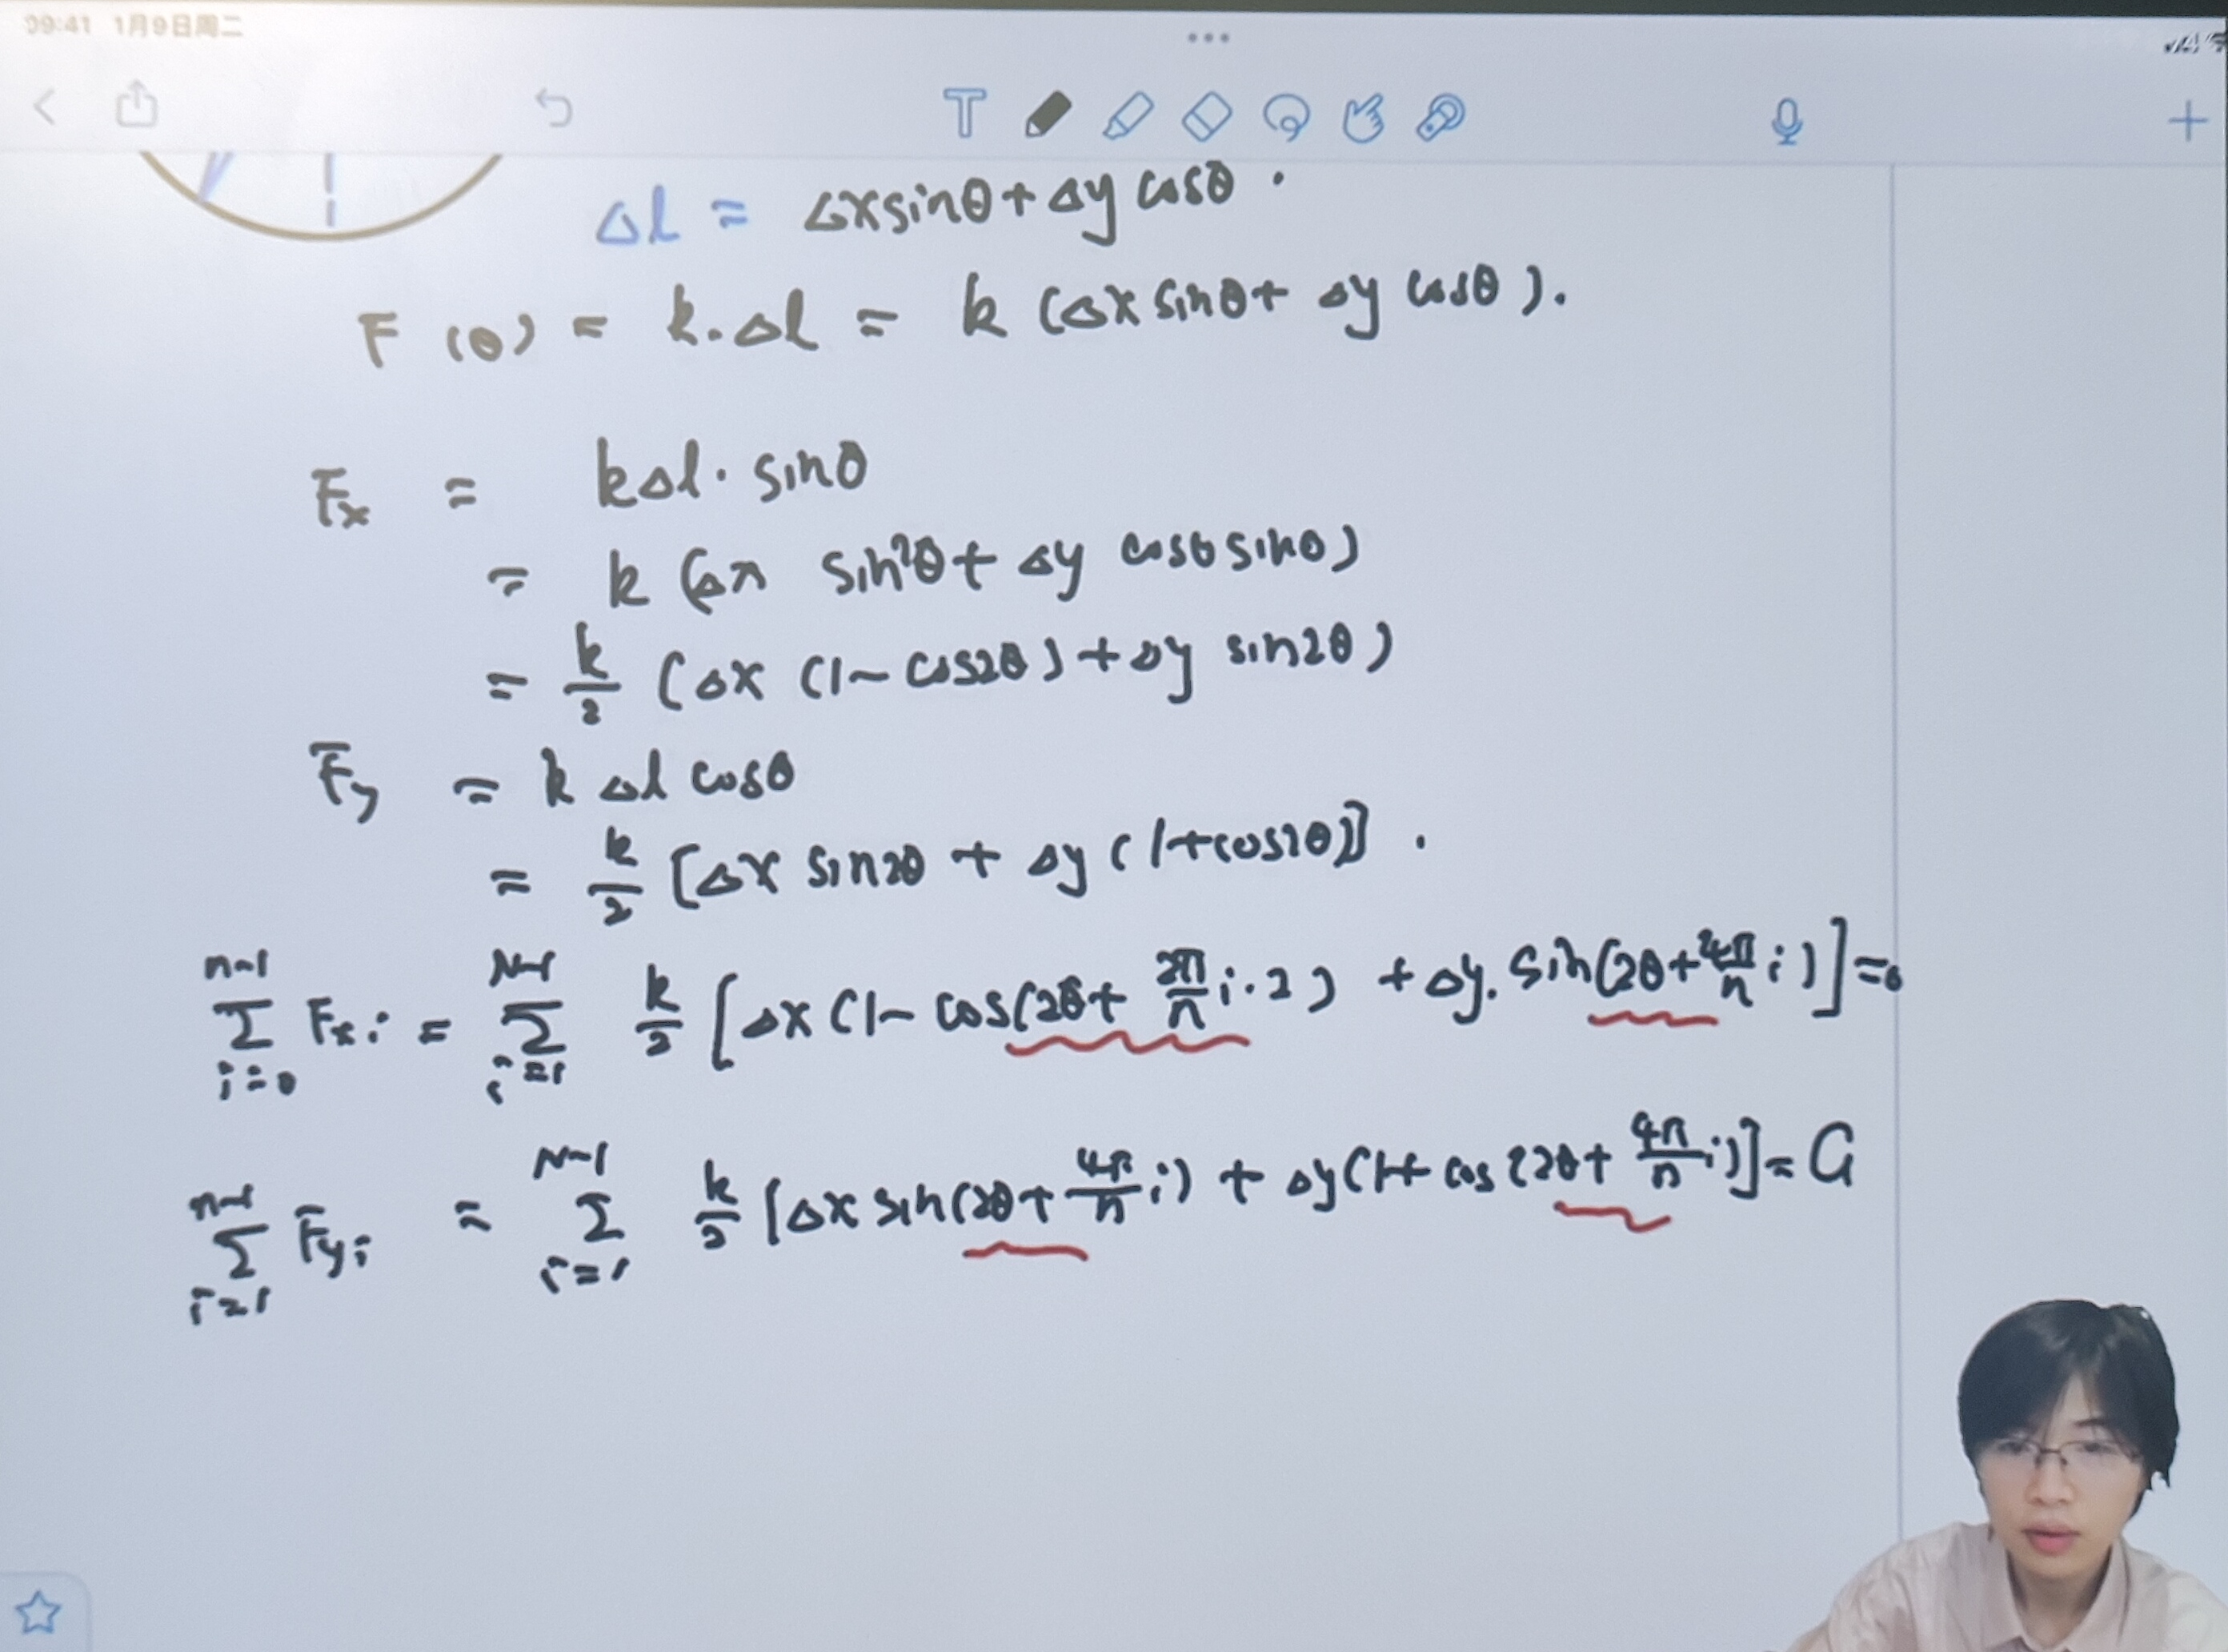 09:41 1月9日周二
T
Δl = Δxsinθ + Δy cosθ.
F(θ) = k.Δl = k (Δx sinθ + Δy cosθ).
Fx = kΔl. sinθ
= k (Δx sin²θ + Δy cosθ sinθ)
= k/2 (Δx (1-cos2θ) + Δy sin2θ)
Fy = k Δl cosθ
= k/2 [Δx sin2θ + Δy (1+cos2θ)].
n-1 Σ i=0 Fxi = N-1 Σ i=1 k/2 [Δx (1-cos(2θ + 2π/n i·2) + Δy. sin(2θ + 4π/n i)] = 0
n-1 Σ i=1 Fyi = N-1 Σ i=1 k/2 [Δx sin(2θ + 4π/n i) + Δy(1+cos(2θ + 4π/n i)] = G